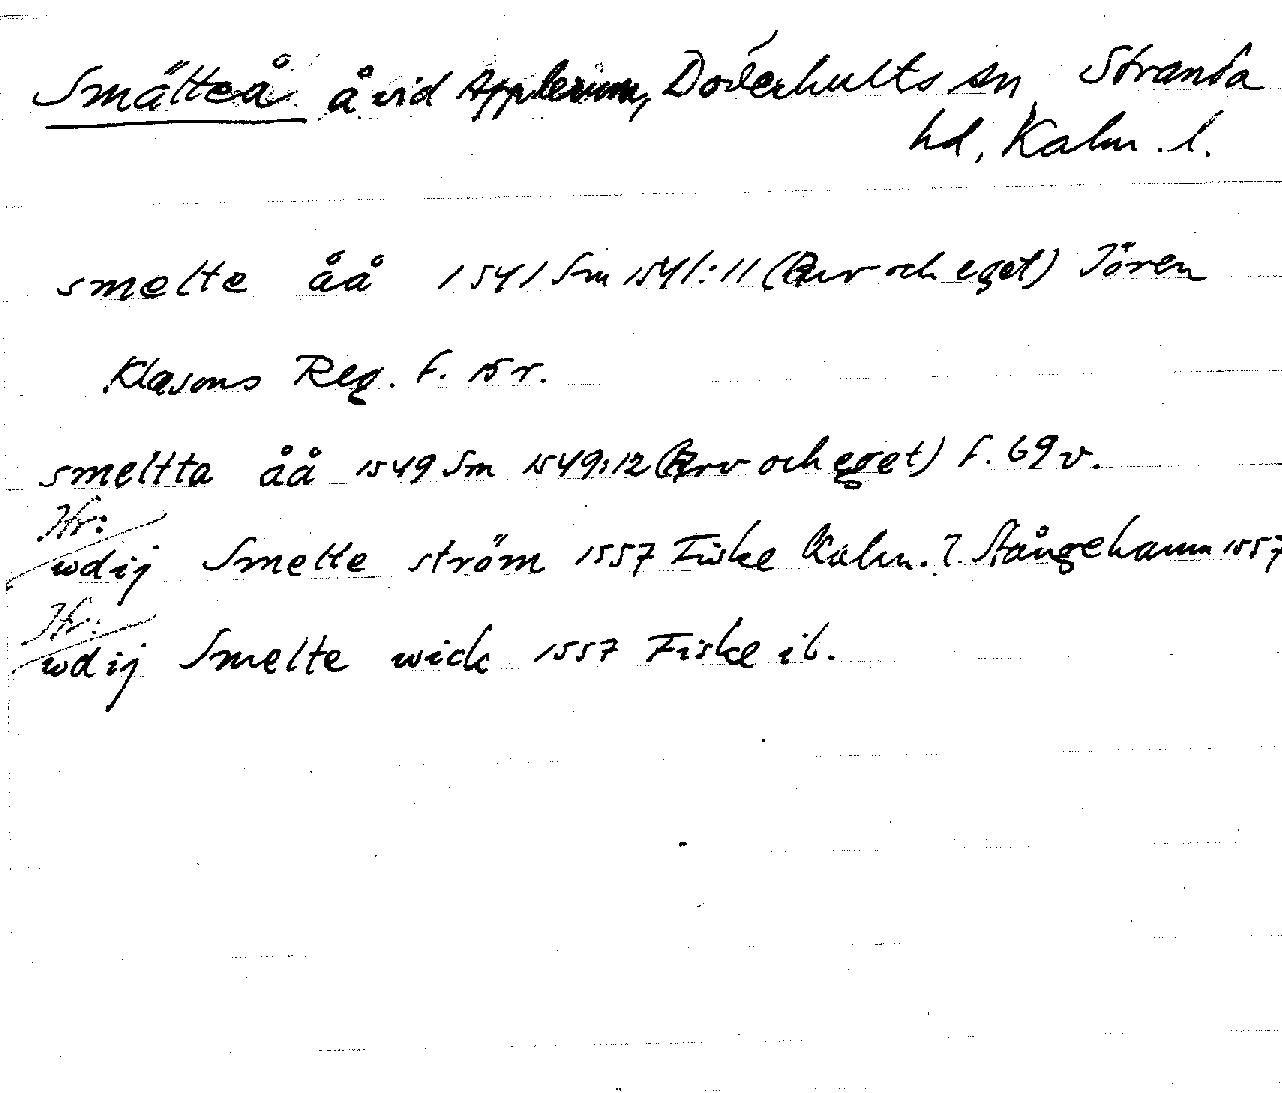 Smälteå å vid Applerum, Döderhults sn, Stranda
hd, Kalm. l.
smelte åå 1541 Sm 1541:11 (Arv och eget) Jören
Klasons Reg. f. 15 r.
smeltta åå 1549 Sm 1549:12 (Arv och eget) f. 69 v.
Hr:
wdij Smelte ström 1557 Fiske Kalm. l Stångehamn 1557
Hr:
wdij Smelte wick 1557 Fiske ib.